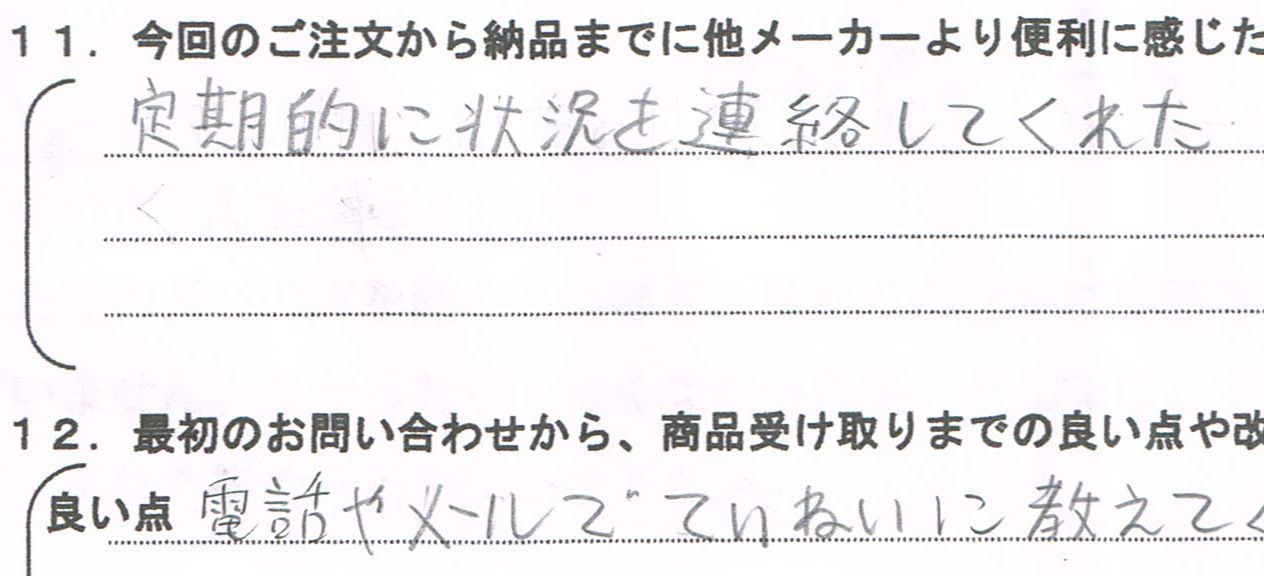 11. 今回のご注文から納品までに他メーカーより便利に感じた
定期的に状況を連絡してくれた
12. 最初のお問い合わせから、商品受け取りまでの良い点や改
良い点 電話やメールで ていねいに教えてく